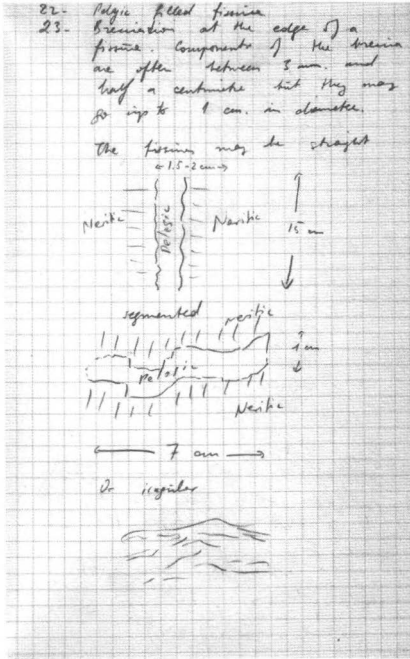 22- Pelgic filled fissure
23- Brecciation at the edge of a
fissure. Components of the breccia
are often between 3 mm. and
half a centimetre but they may
go up to 1 cm. in diameter.
The fissures may be straight
1.5-2 cm
Neritic
Pelagic
Neritic
15 cm
segmented
Neritic
1 cm
Pelagic
Neritic
7 cm
Or irregular